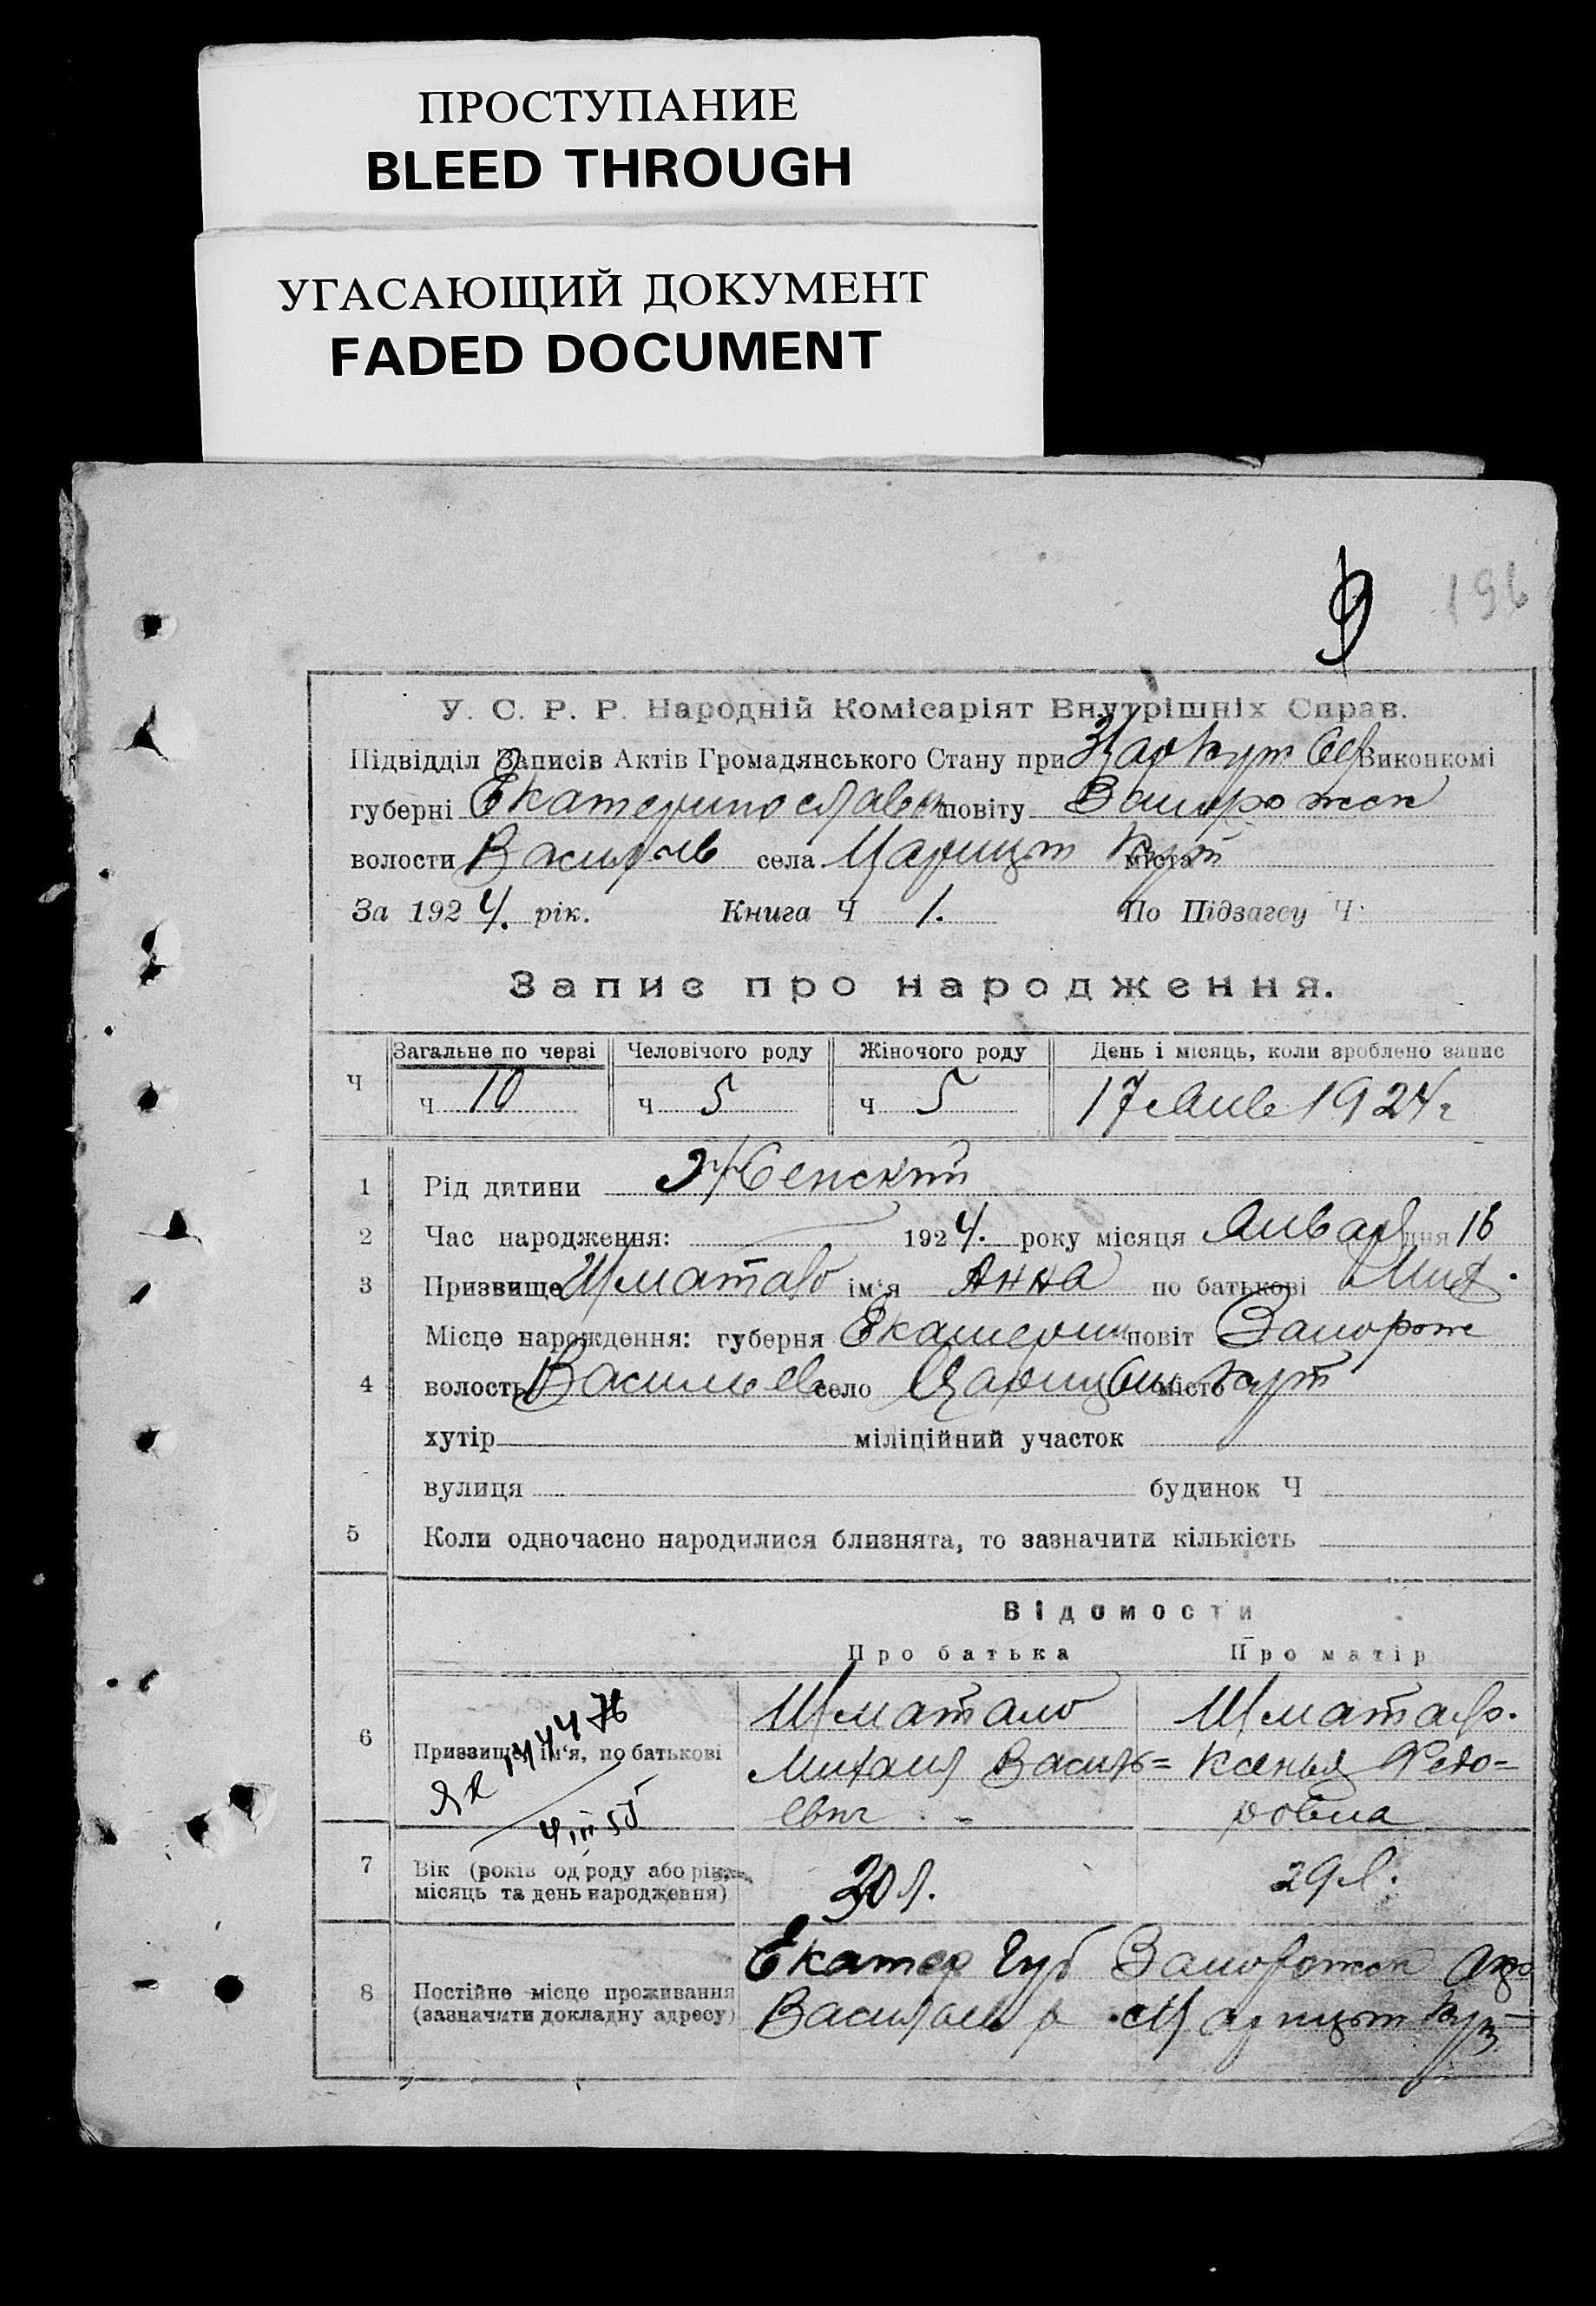 ПРОСТУПАНИЕ
BLEED THROUGH
УГАСАЮЩИЙ ДОКУМЕНТ
FADED DOCUMENT
9 196
У. С. Р. Р. Народній Комісаріят Внутрішніх Справ.
Підвідділ Записів Актів Громадянського Стану при Виконкомі
губерні Екатеринославск повіту Запорожск
волости Васильев села Царицын Кут міста
За 1924. рік. Книга Ч 1. По Підзагсу Ч.
Запис про народження.
Загальне по черзі Человічого роду Жіночого роду День і місяць, коли зроблено запис
Ч ч 10 ч 5 ч 5 17 Янв 1924 г
1 Рід дитини Женский
2 Час народження: 1924. року місяця Января дня 16
3 Призвище Шматало ім'я Анна по батькові Мих.
Місце нарождення: губерня Екатерин повіт Запорож
4 волость Васильев село Царицын Кут місто
хутір міліційний участок
вулиця будинок Ч
5 Коли одночасно народилися близнята, то зазначити кількість
Відомости
Про батька Про матір
6 Призвище, ім'я, по батькові
Шматало Шматало.
Михаил Василь= Ксенья Федо=
евич - ровна
7 Вік (років од роду або рік,
місяць та день народження)
30 л. 29 л.
8 Постійне місце проживання
(зазначити докладну адресу)
Екатер Губ Запорожск окр
Васильев р. с. Царицын Кут